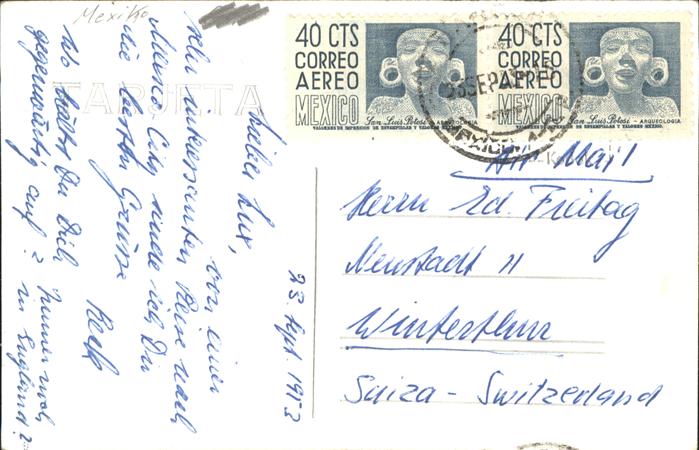 Mexiko
TARJETA
40 CTS
CORREO
AEREO
MEXICO
San Luis Potosi - ARQUEOLOGIA
TALLERES DE IMPRESION DE ESTAMPILLAS Y VALORES MEXICO.
40 CTS
CORREO
AEREO
MEXICO
San Luis Potosi - ARQUEOLOGIA
TALLERES DE IMPRESION DE ESTAMPILLAS Y VALORES MEXICO.
SEP
Air Mail
Herrn Ed. Freitag
Neustadt 11
Winterthur
Suiza - Switzerland
23. Sept. 1953
Lieber Lux,
von einer
sehr interessanten Reise nach
Mexico City sende ich Dir
die besten Grüsse
Wo hältst Du Dich
gegenwärtig auf? Immer noch
in England?